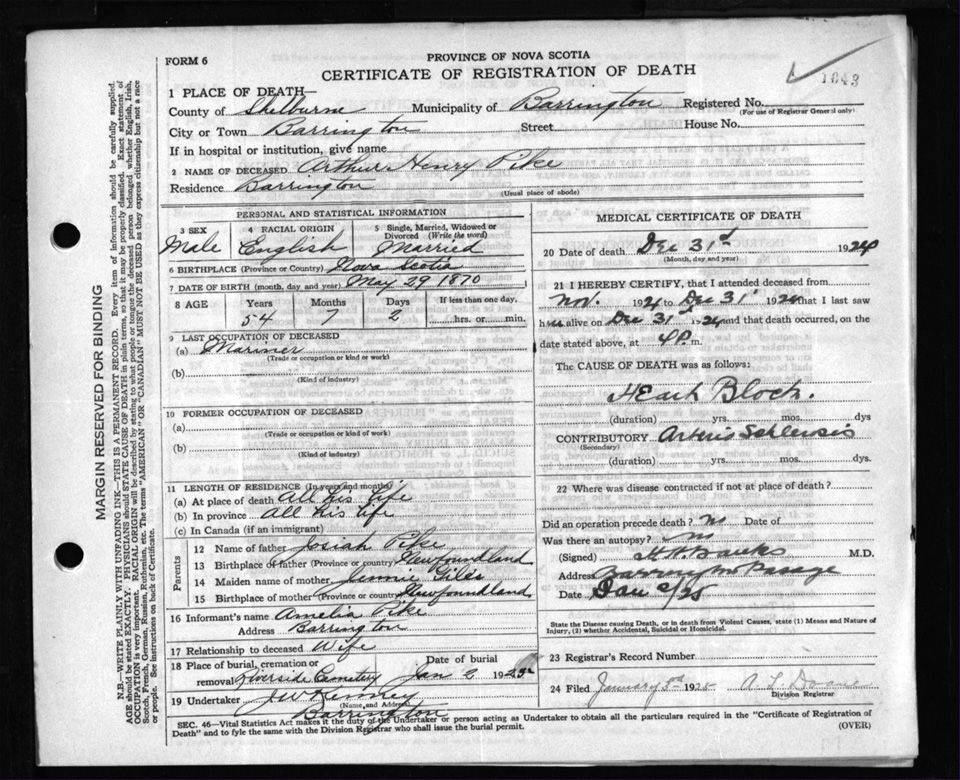 MARGIN RESERVED FOR BINDING
N.B.—WRITE PLAINLY WITH UNFADING INK—THIS IS A PERMANENT RECORD. Every item of information should be carefully supplied.
AGE should be stated EXACTLY. PHYSICIANS should STATE CAUSE OF DEATH in plain terms, so that it may be properly classified. Exact statement of
OCCUPATION is very important. RACIAL ORIGIN will be described by stating to what people or tongue the deceased person belonged whether English, Irish,
Scotch, French, German, Russian, Ruthenian, etc. The terms "AMERICAN" OR "CANADIAN" MUST NOT BE USED as they express citizenship but not a race
or people. See instructions on back of Certificate.
FORM 6
PROVINCE OF NOVA SCOTIA
CERTIFICATE OF REGISTRATION OF DEATH
1843
1 PLACE OF DEATH—
County of Shelburne Municipality of Barrington Registered No.
(For use of Registrar General only)
City or Town Barrington Street House No.
If in hospital or institution, give name
2 NAME OF DECEASED Arthur Henry Pike
Residence Barrington
(Usual place of abode)
PERSONAL AND STATISTICAL INFORMATION
3 SEX 4 RACIAL ORIGIN 5 Single, Married, Widowed or Divorced (Write the word)
Male English Married
6 BIRTHPLACE (Province or Country) Nova Scotia
7 DATE OF BIRTH (month, day and year) May 29 1870
8 AGE Years Months Days If less than one day,
54 7 2 hrs. or min.
9 LAST OCCUPATION OF DECEASED
(a) Mariner
(Trade or occupation or kind or work)
(b)
(Kind of industry)
10 FORMER OCCUPATION OF DECEASED
(a)
(Trade or occupation or kind of work)
(b)
(Kind of industry)
11 LENGTH OF RESIDENCE (In years and months)
(a) At place of death All his life
(b) In province All his life
(c) In Canada (if an immigrant)
Parents
12 Name of father Josiah Pike
13 Birthplace of father (Province or country) Newfoundland
14 Maiden name of mother Jennie Giles
15 Birthplace of mother (Province or country) Newfoundland
16 Informant's name Amelia Pike
Address Barrington
17 Relationship to deceased Wife
18 Place of burial, cremation or Date of burial
removal Riverside Cemetery Jan 2 1925
19 Undertaker J W Kenney
(Name, and Address)
Barrington
MEDICAL CERTIFICATE OF DEATH
20 Date of death Dec 31st 1924
(Month, day and year)
21 I HEREBY CERTIFY, that I attended deceased from
Nov. 1924 to Dec 31 1924 that I last saw
him alive on Dec 31st 1924 and that death occurred, on
date stated above, at 4 P. m.
The CAUSE OF DEATH was as follows:
Heart Block.
(duration) yrs. mos. dys
CONTRIBUTORY Arterio Schlerosis
(Secondary)
(duration) yrs. mos. dys.
22 Where was disease contracted if not at place of death?
Did an operation precede death? no Date of
Was there an autopsy? no
(Signed) Banks M.D.
Address Barrington Passage
Date Jan 2/25
State the Disease causing Death, or in death from Violent Causes, state (1) Means and Nature of
Injury, (2) whether Accidental, Suicidal or Homicidal.
23 Registrar's Record Number
24 Filed January 3rd 1925 A L Doane
Division Registrar
SEC. 46—Vital Statistics Act makes it the duty of the Undertaker or person acting as Undertaker to obtain all the particulars required in the "Certificate of Registration of
Death" and to fyle the same with the Division Registrar who shall issue the burial permit. (OVER)